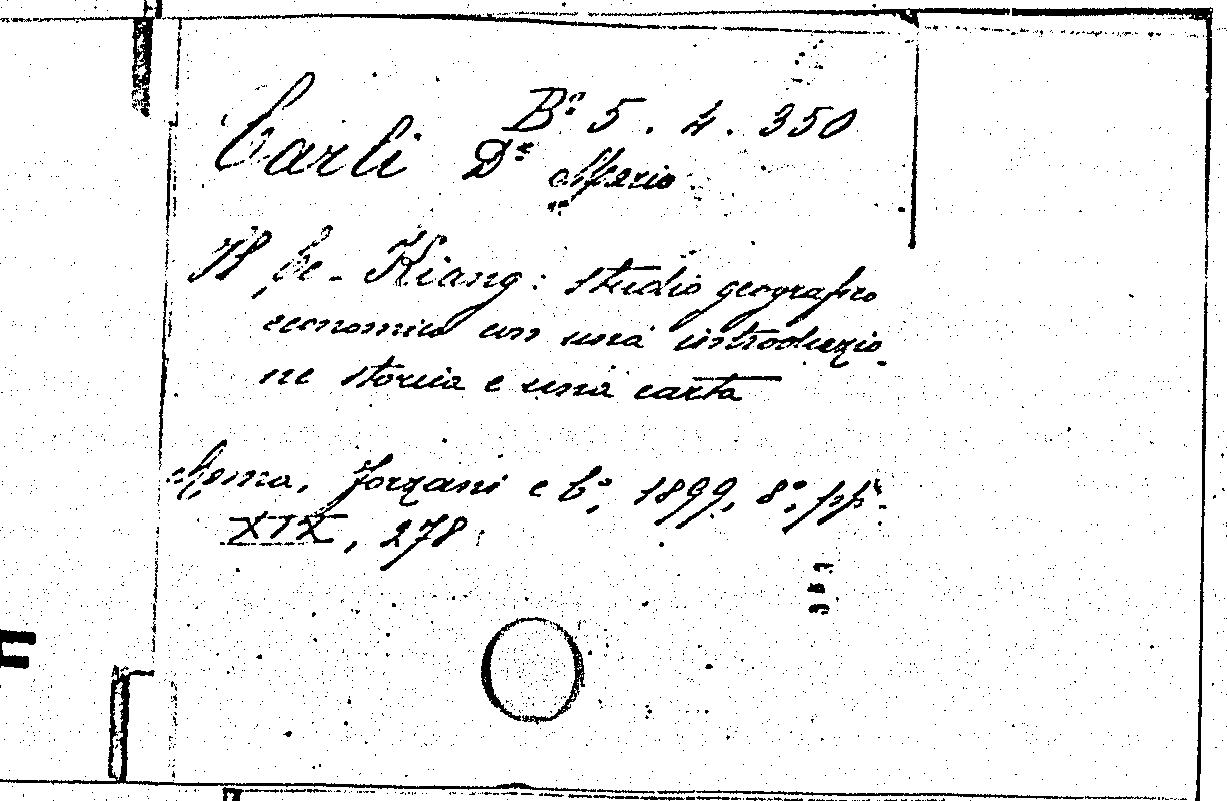 Bª 5. 4. 350
Carli Dr. Alferio
Il Ce-Kiang: studio geografico
economico con una introduzio-
ne storica e una carta
Roma, Forzani e Cº, 1899, 8º, pp.
XIX, 278